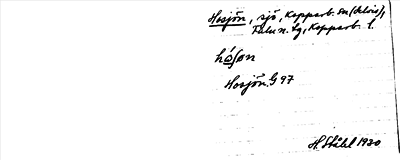 Hosjön, sjö, Kopparb. sn (delvis),
Falu n. bg, Kopparb. l.
hósøn
Hosjön G 97
H. Ståhl 1930